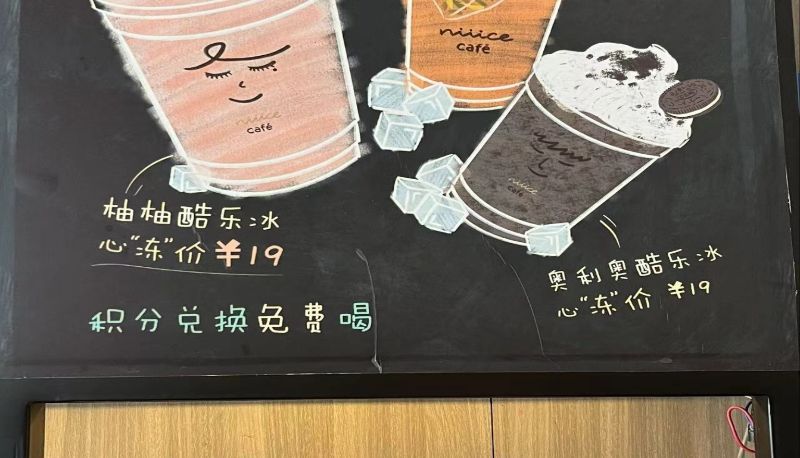 niiice
café
niiice
café
niiice
café
柚柚酷乐冰
心“冻”价 ¥19
奥利奥酷乐冰
心“冻”价 ¥19
积分兑换免费喝